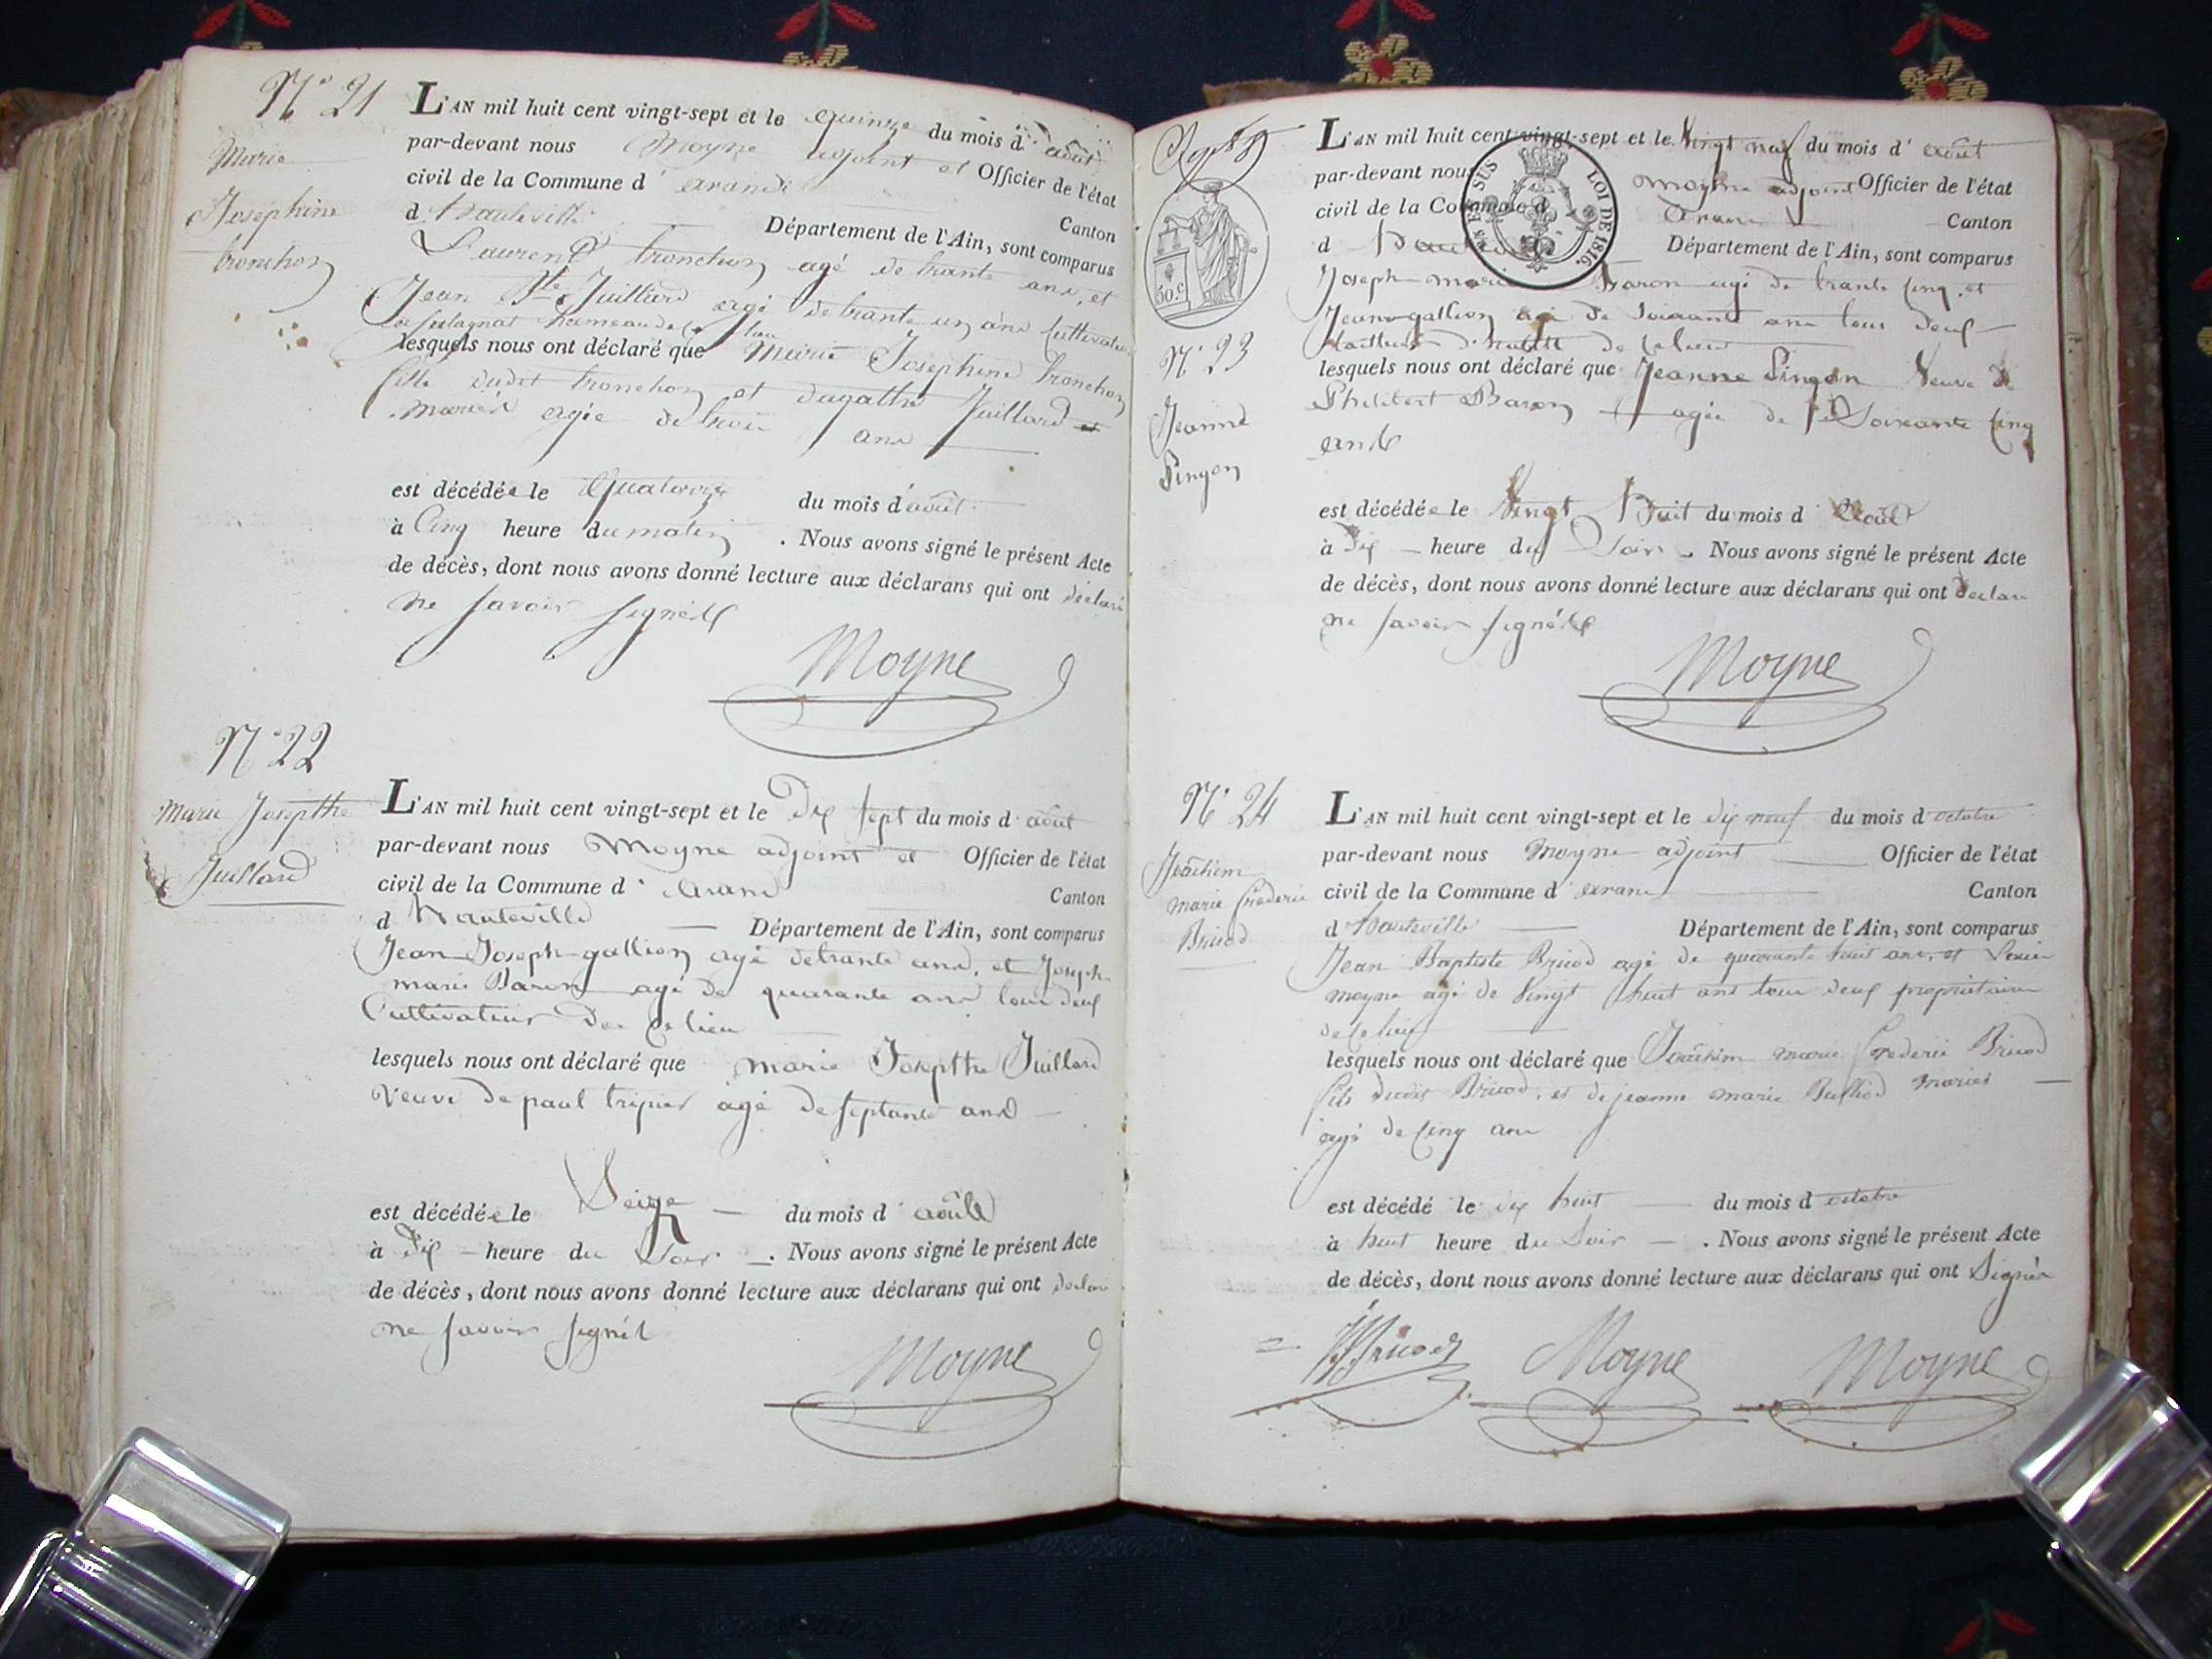 N° 21
Marie
Josephine
tronchon
L'AN mil huit cent vingt-sept et le quinze du mois d'août
par-devant nous Moyne adjoint et Officier de l'état
civil de la Commune d'arand
Canton
d hauteville Département de l'Ain, sont comparus
Laurent tronchon agé de trante ans, et
Jean Bte Juilliard agé de trante un ans Cultivateur
hameau de
lesquels nous ont déclaré que Marie Josephine tronchon
fille dudit tronchon et Juillard
mariés agée de trois ans
est décédée le Quatorze du mois d'août
à Cinq heure du matin . Nous avons signé le présent Acte
de décès, dont nous avons donné lecture aux déclarans qui ont déclaré
ne savoir signé
Moyne
N° 22
marie Josepthe
Juillard
L'AN mil huit cent vingt-sept et le Dix sept du mois d'août
par-devant nous Moyne adjoint et Officier de l'état
civil de la Commune d'Arand
Canton
d Hauteville Département de l'Ain, sont comparus
Jean Joseph gallion agé de trante ans, et Joseph
marie Baron agé de quarante ans tous deux
Cultivateurs De ce lieu
lesquels nous ont déclaré que marie Josepthe Juillard
veuve de paul tripier agé de septante ans
est décédée le Seize du mois d'août
à Dix heure du Soir . Nous avons signé le présent Acte
de décès, dont nous avons donné lecture aux déclarans qui ont déclaré
ne savoir signé
Moyne
50.c
EN SUS
LOI DE 1816.
N° 23
Jeanne
Pingon
L'AN mil huit cent vingt-sept et le vingt neuf du mois d'août
par-devant nous moyne adjoint Officier de l'état
civil de la Commune d Arand
Canton
d Hauteville Département de l'Ain, sont comparus
Joseph marie Baron agé de trante cinq, et
Jean gallion agé de soixante ans tous deux
de ce lieu
lesquels nous ont déclaré que Jeanne Pingon Veuve de
Philibert Baron agée de Soixante Cinq
ans
est décédée le Vingt Huit du mois d'Août
à Dix heure du Soir . Nous avons signé le présent Acte
de décès, dont nous avons donné lecture aux déclarans qui ont déclaré
ne savoir signé
Moyne
N° 24
Joachim
marie frederic
Bricod
L'AN mil huit cent vingt-sept et le dix neuf du mois d'octobre
par-devant nous Moyne adjoint Officier de l'état
civil de la Commune d'arand
Canton
d'hauteville Département de l'Ain, sont comparus
Jean Baptiste Bricod agé de quarante huit ans, et
moyne agé de Vingt huit ans tous deux propriétaires
de ce lieu
lesquels nous ont déclaré que Joachim marie frederic Bricod
fils dudit Bricod, et de jeanne marie Bulliod mariés
agé de Cinq ans
est décédé le dix huit du mois d octobre
à huit heure du Soir . Nous avons signé le présent Acte
de décès, dont nous avons donné lecture aux déclarans qui ont Signés
Moyne
Moyne